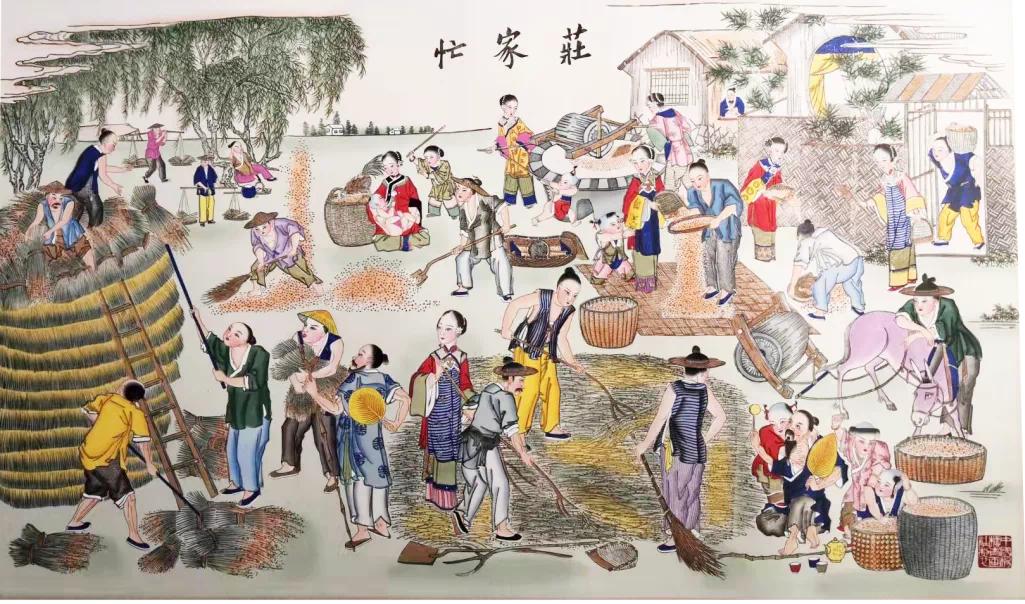 莊家忙